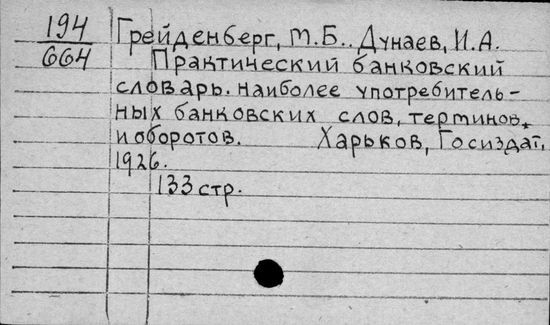 194
664
Грейденберг, М.Б., Дунаев, И.А.
Практический банковский
словарь. наиболее употребитель-
ных банковских слов, терминов,
и оборотов. Харьков, Госиздат,
1926.
133 стр.